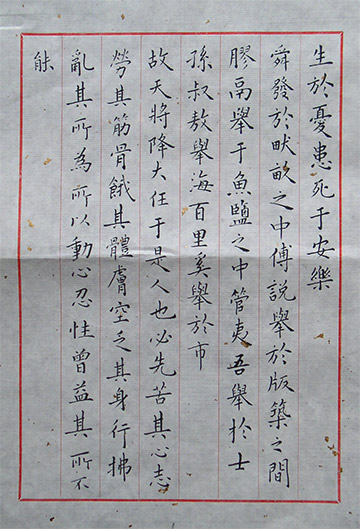 生於憂患死于安樂
舜發於畎畝之中傅說舉於版築之間
膠鬲舉于魚鹽之中管夷吾舉於士
孫叔敖舉海百里奚舉於市
故天將降大任于是人也必先苦其心志
勞其筋骨餓其體膚空乏其身行拂
亂其所為所以動心忍性曾益其所不
能